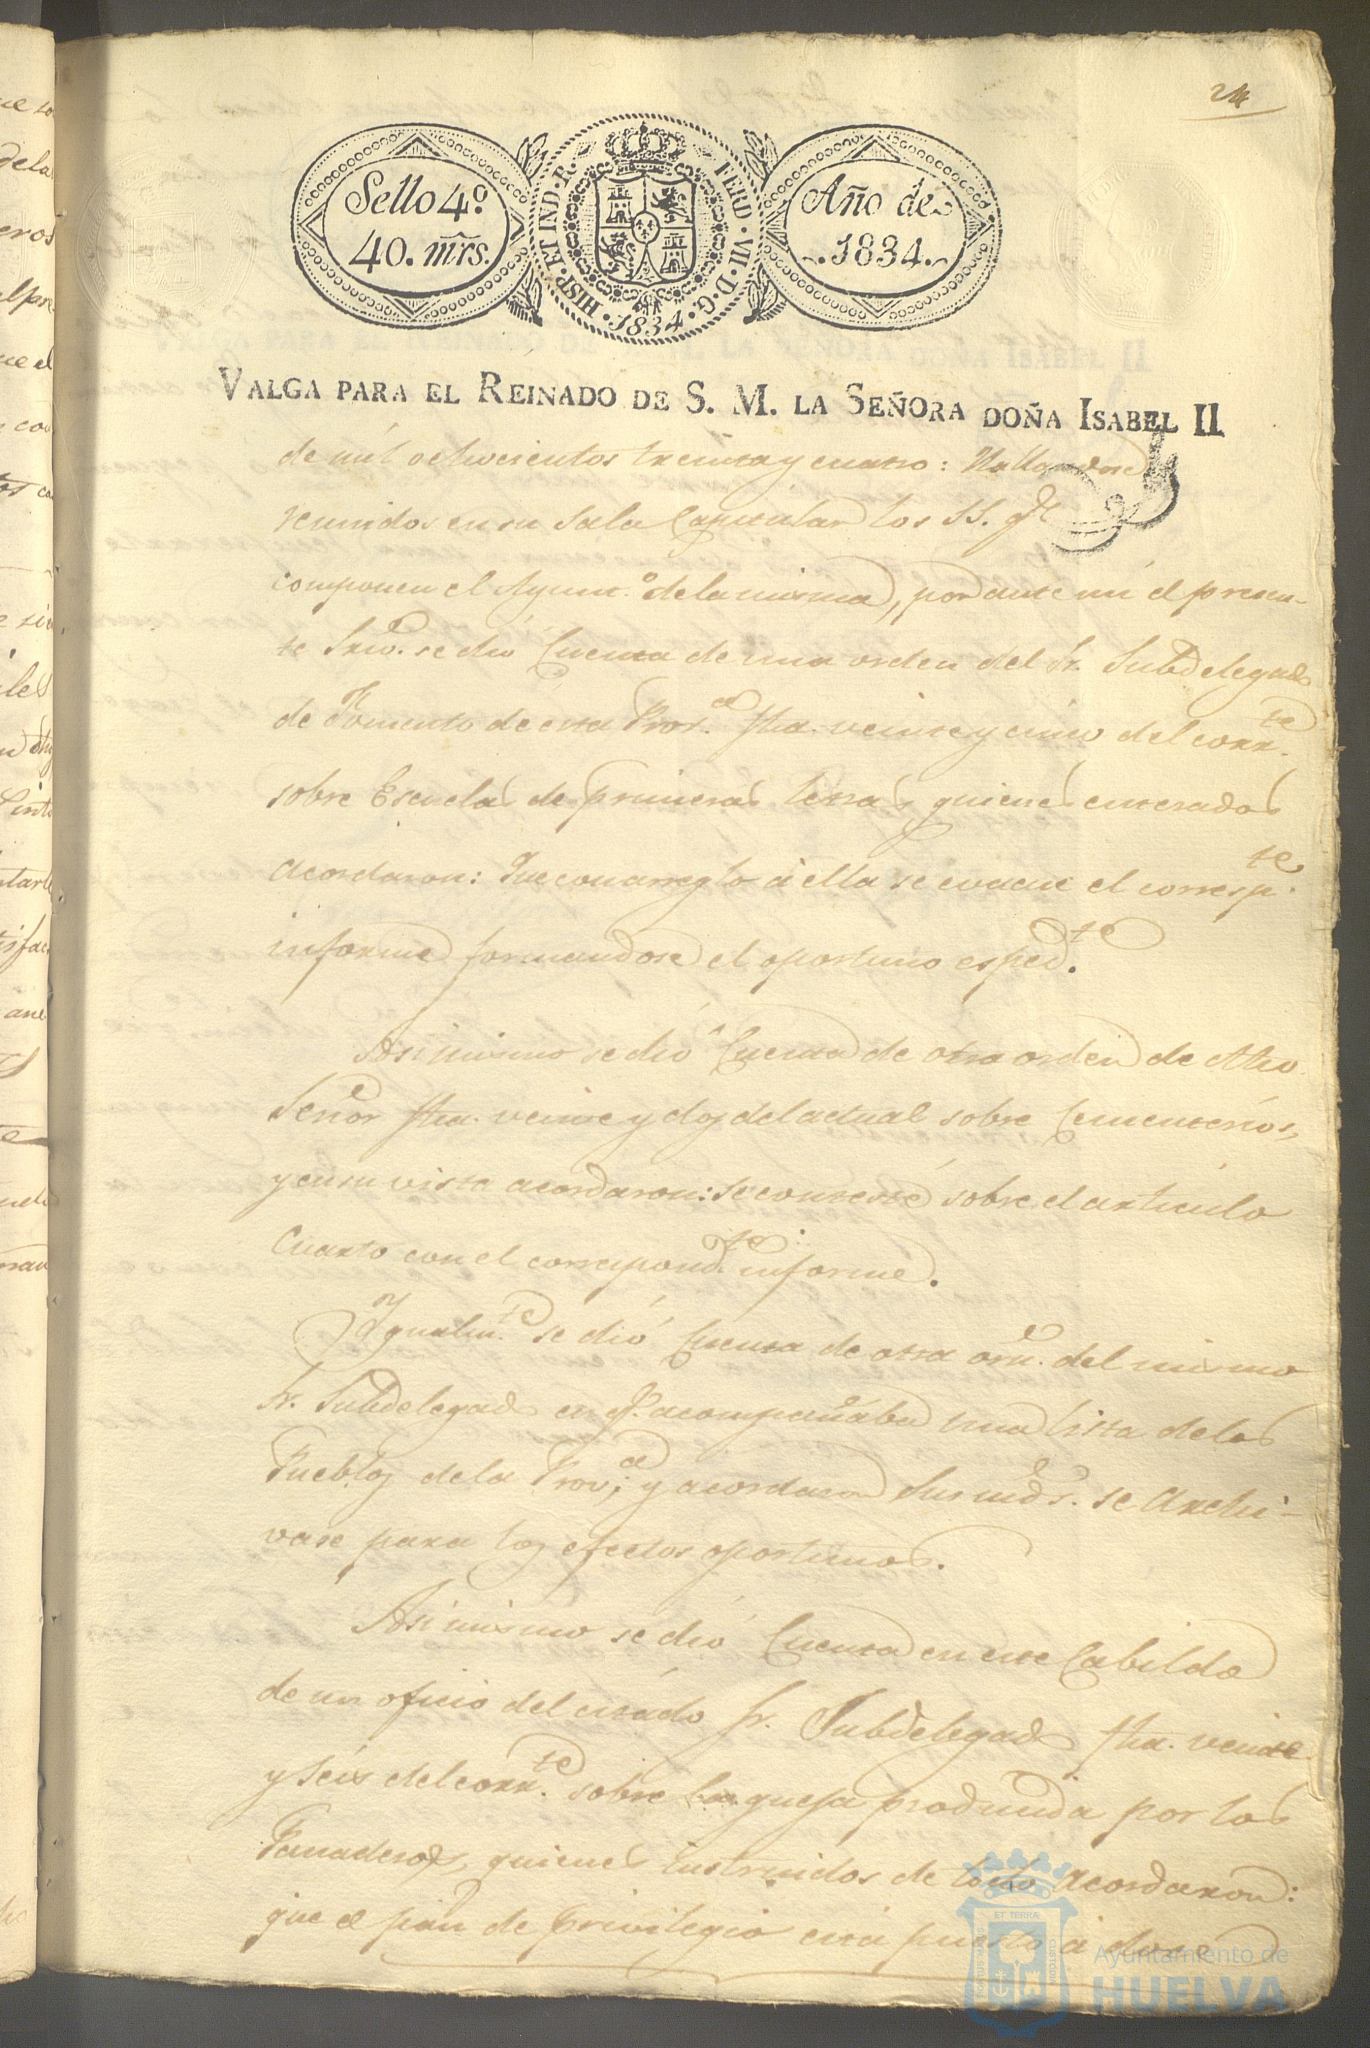 24
Sello 4º
40. mrs.
HISP. ET IND. R. FERD. VII. D. G. 1834.
Año de
1834.
VALGA PARA EL REINADO DE S. M. LA SEÑORA DOÑA ISABEL II
de mil ochocientos treinta y cuatro: Hallandose
reunidos en su Sala Capitular los SS. qe
componen el Ayunto. de la misma, por ante mi el presen-
te Srio. se dió Cuenta de una orden del Sr. Subdelegado
de Fomento de esta Prova. fha. veinte y cinco del corrte.
sobre Escuelas de primeras letras, quienes enterados
acordaron: Que con arreglo á ella se evacue el correspte.
informe formandose el oportuno espedte.
Asimismo se dió Cuenta de otra orden de dho.
Señor fha. veinte y dos del actual sobre Cementerios,
y en su vista acordaron: se conteste sobre el articulo
Cuarto con el correspondte. informe.
Ygualmte. se dió Cuenta de otra orn. del mismo
Sr. Subdelegado en q. acompañaba una lista de los
Pueblos de la Prova; y acordaron Sus mds. se Archi-
vase para los efectos oportunos.
Asimismo se dió Cuenta en este Cabildo
de un oficio del citado Sr. Subdelegado fha. veinte
y seis del corrte. sobre la queja producida por los
Panaderos, quienes instruidos de todo Acordaron:
que el pan de Privilegio está puesto á doce
Ayuntamiento de
HUELVA